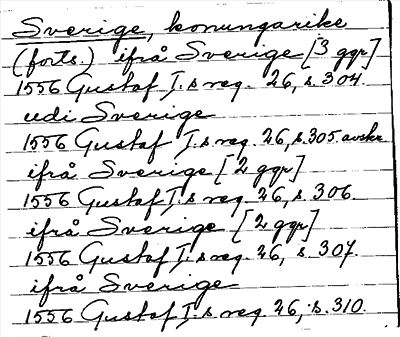 Sverige, konungarike
(forts.) ifrå Sverige [3 ggr]
1556 Gustaf I:s reg. 26, s. 304.
udi Sverige
1556 Gustaf I:s reg. 26, s. 305. avskr.
ifrå Sverige [2 ggr]
1556 Gustaf I:s reg. 26, s. 306.
ifrå Sverige [2 ggr]
1556 Gustaf I:s reg. 26, s. 307.
ifrå Sverige
1556 Gustaf I:s reg. 26, s. 310.